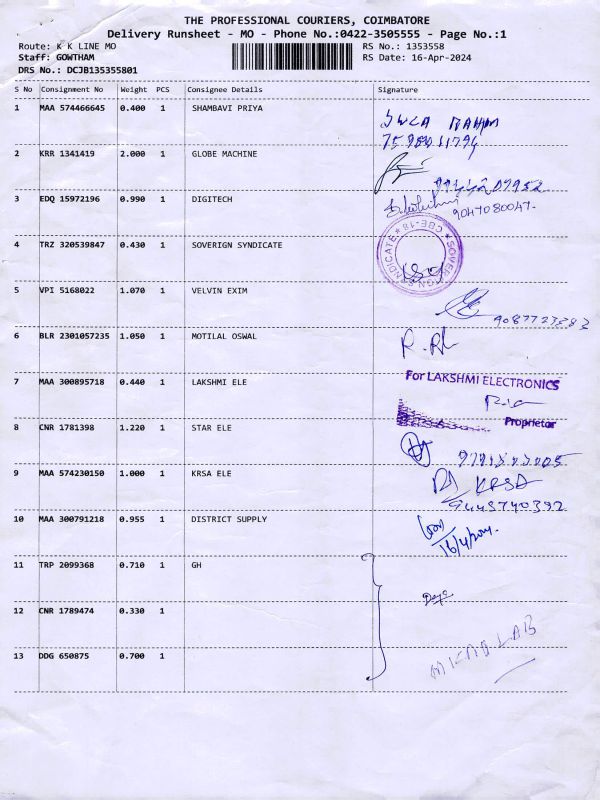 THE PROFESSIONAL COURIERS, COIMBATORE
Delivery Runsheet - MO - Phone No.:0422-3505555 - Page No.:1
Route: K K LINE MO
RS No.: 1353558
Staff: GOWTHAM
RS Date: 16-Apr-2024
DRS No.: DCJB135355801
S No Consignment No Weight PCS Consignee Details Signature
1 MAA 574466645 0.400 1 SHAMBAVI PRIYA
2 KRR 1341419 2.000 1 GLOBE MACHINE
3 EDQ 15972196 0.990 1 DIGITECH
9047080047-
4 TRZ 320539847 0.430 1 SOVERIGN SYNDICATE
SOVEREIGN SYNDICATE ★ CBE-18 ★
5 VPI 5168022 1.070 1 VELVIN EXIM
6 BLR 2301057235 1.050 1 MOTILAL OSWAL
7 MAA 300895718 0.440 1 LAKSHMI ELE
For LAKSHMI ELECTRONICS
Proprietor
8 CNR 1781398 1.220 1 STAR ELE
9 MAA 574230150 1.000 1 KRSA ELE
KRSA
9445740392
10 MAA 300791218 0.955 1 DISTRICT SUPPLY
16/4/2024.
11 TRP 2099368 0.710 1 GH
12 CNR 1789474 0.330 1
13 DDG 650875 0.700 1